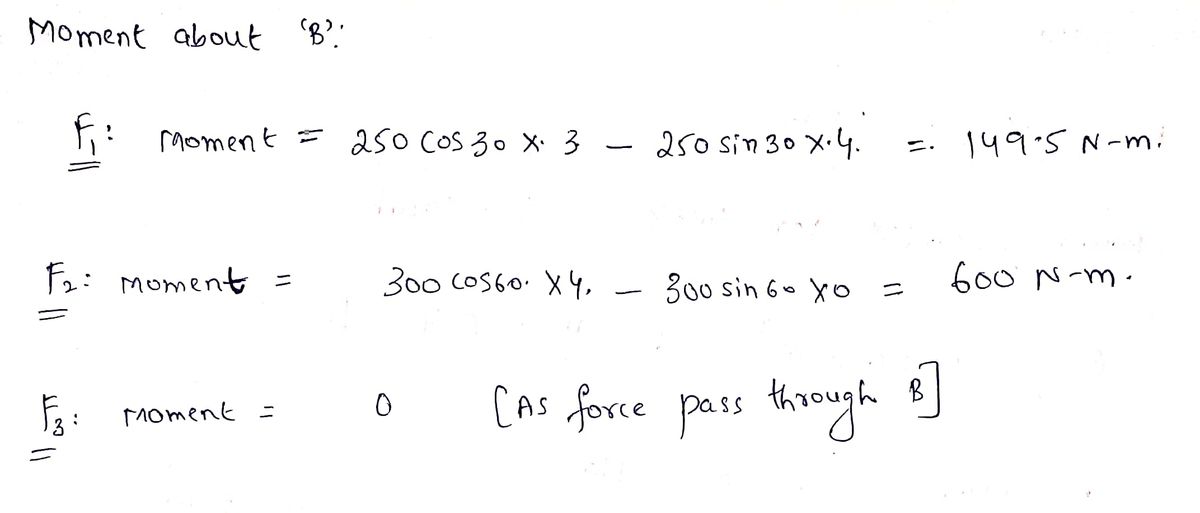 Moment about 'B':
F₁: Moment = 250 cos 30 x 3 – 250 sin 30 x 4. = 149.5 N-m.
F₂: Moment = 300 cos60. x 4. – 300 sin 60 x 0 = 600 N-m.
F₃: Moment = 0 [As force pass through B]